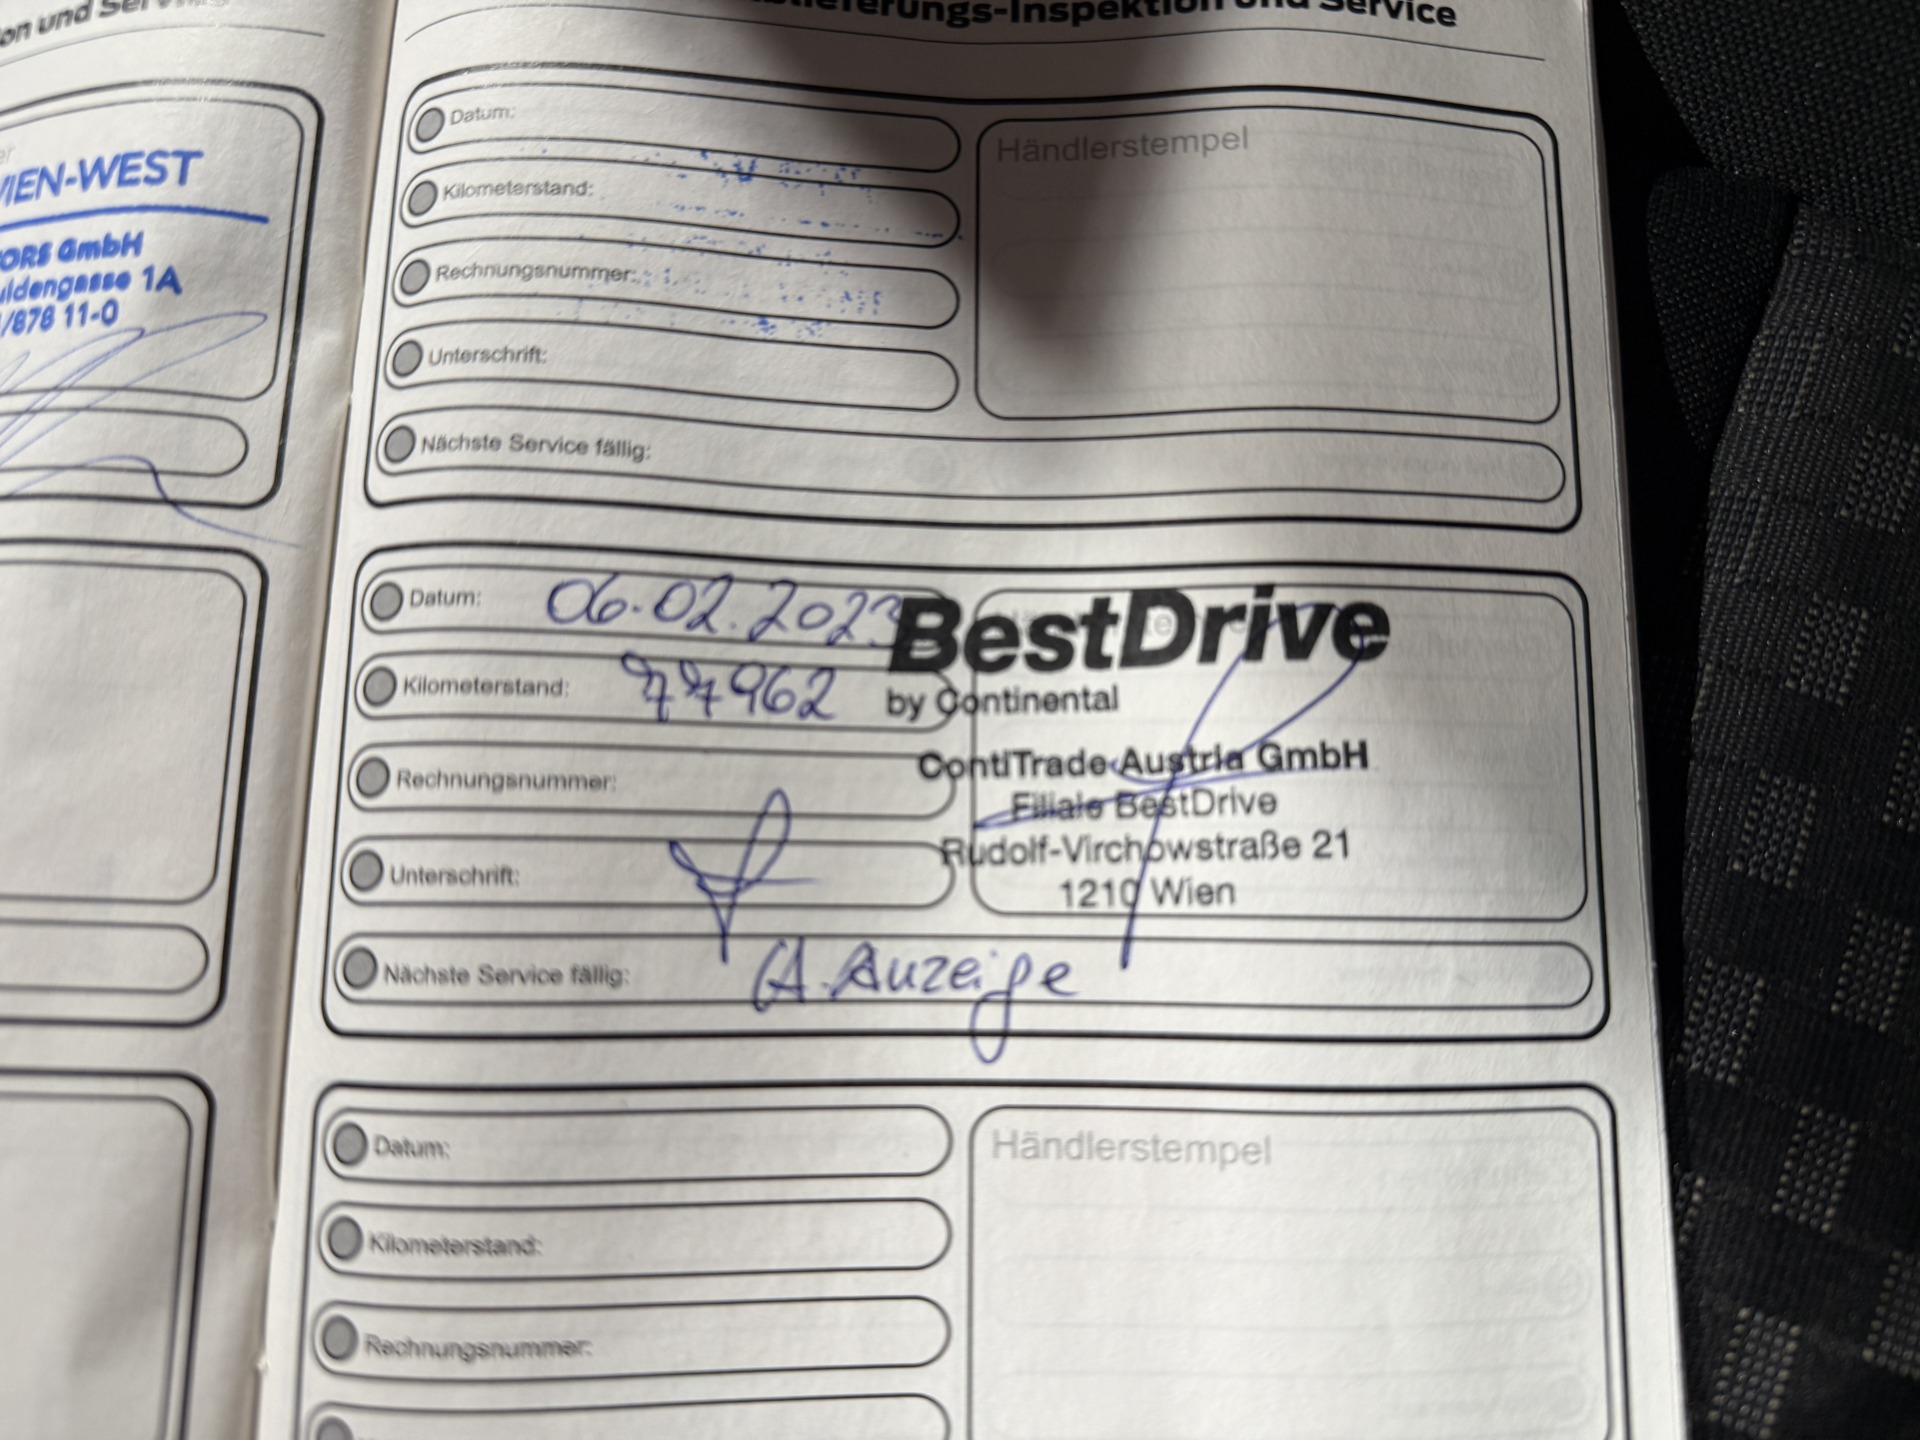 on und Ser
WIEN-WEST
ORS GmbH
ldengasse 1A
/878 11-0
blieferungs-Inspektion und Service
Datum:
Händlerstempel
Kilometerstand:
Rechnungsnummer:
Unterschrift:
Nächste Service fällig:
Datum: 06.02.2023
BestDrive
Kilometerstand: 77962
by Continental
Rechnungsnummer:
ContiTrade Austria GmbH
Filiale BestDrive
Unterschrift:
Rudolf-Virchowstraße 21
1210 Wien
Nächste Service fällig: lt. Anzeige
Datum:
Händlerstempel
Kilometerstand:
Rechnungsnummer: